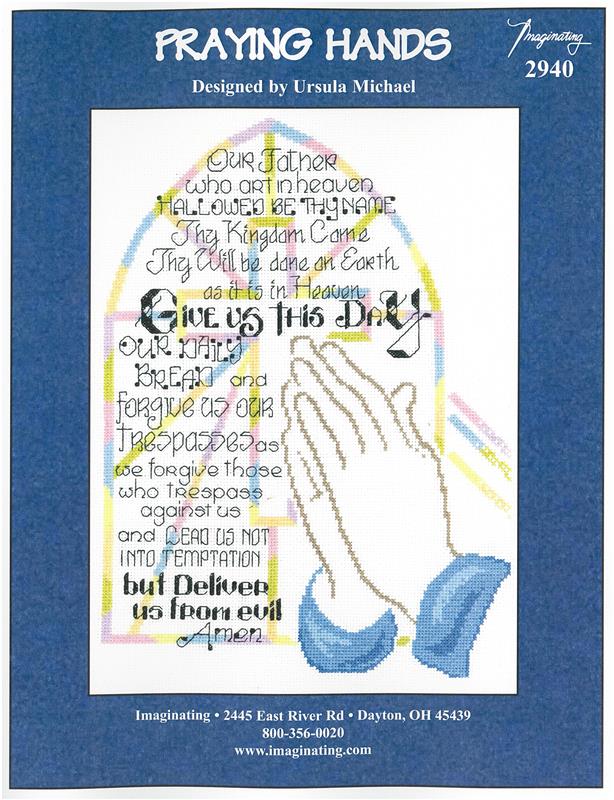 PRAYING HANDS
Imaginating
2940
Designed by Ursula Michael
Our Father
who art in heaven
HALLOWED BE THY NAME
Thy Kingdom Come
Thy Will be done on Earth
as it is in Heaven
GIVE US THIS DAY
OUR DAILY
BREAD and
forgive us our
Trespasses as
we forgive those
who trespass
against us
and LEAD US NOT
INTO TEMPTATION
but Deliver
us from evil
Amen
Imaginating • 2445 East River Rd • Dayton, OH 45439
800-356-0020
www.imaginating.com